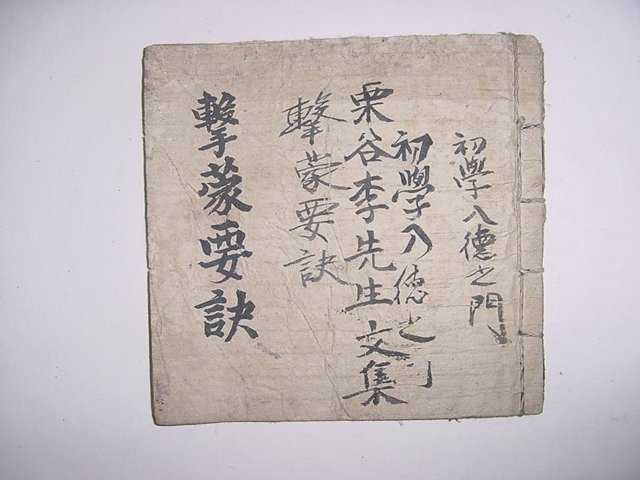 初學入德之門
初學入德之門
栗谷李先生文集
擊蒙要訣
擊蒙要訣